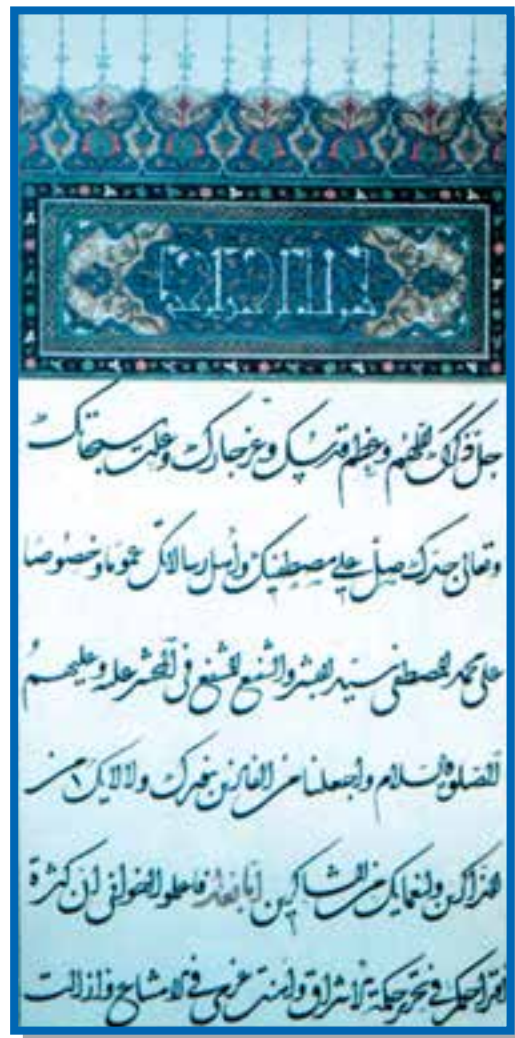 بسم الله الرحمن الرحيم
جل ذكرك اللهم وعظم قدسك وعز جارك وعلت سبحاتك
وتعالى جدك صل على مصطفيك وأهل رسالاتك عموما وخصوصا
على محمد المصطفى سيد البشر والشفيع المشفع في المحشر عليه وعليهم
الصلوة والسلام واجعلنا من الفائزين بنورك ولآلائك من
الذاكرين ولنعمائك من الشاكرين أما بعد فاعلموا إخواني أن كثرة
اقتراحكم في تحرير حكمة الاشراق وهنت عزمي في الامتناع وازالت